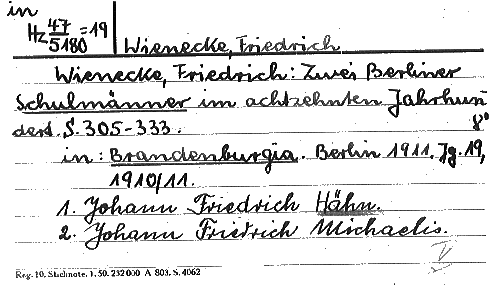 in
Hz 47/5180 = 19
Wienecke, Friedrich
Wienecke, Friedrich: Zwei Berliner
Schulmänner im achtzehnten Jahrhun
dert. S. 305-333. 8°
in: Brandenburgia. Berlin 1911. Jg. 19,
1910/11.
1. Johann Friedrich Hähn.
2. Johann Friedrich Michaelis.
V
Reg. 10. 1. 50. 232000 A 803. S. 4062